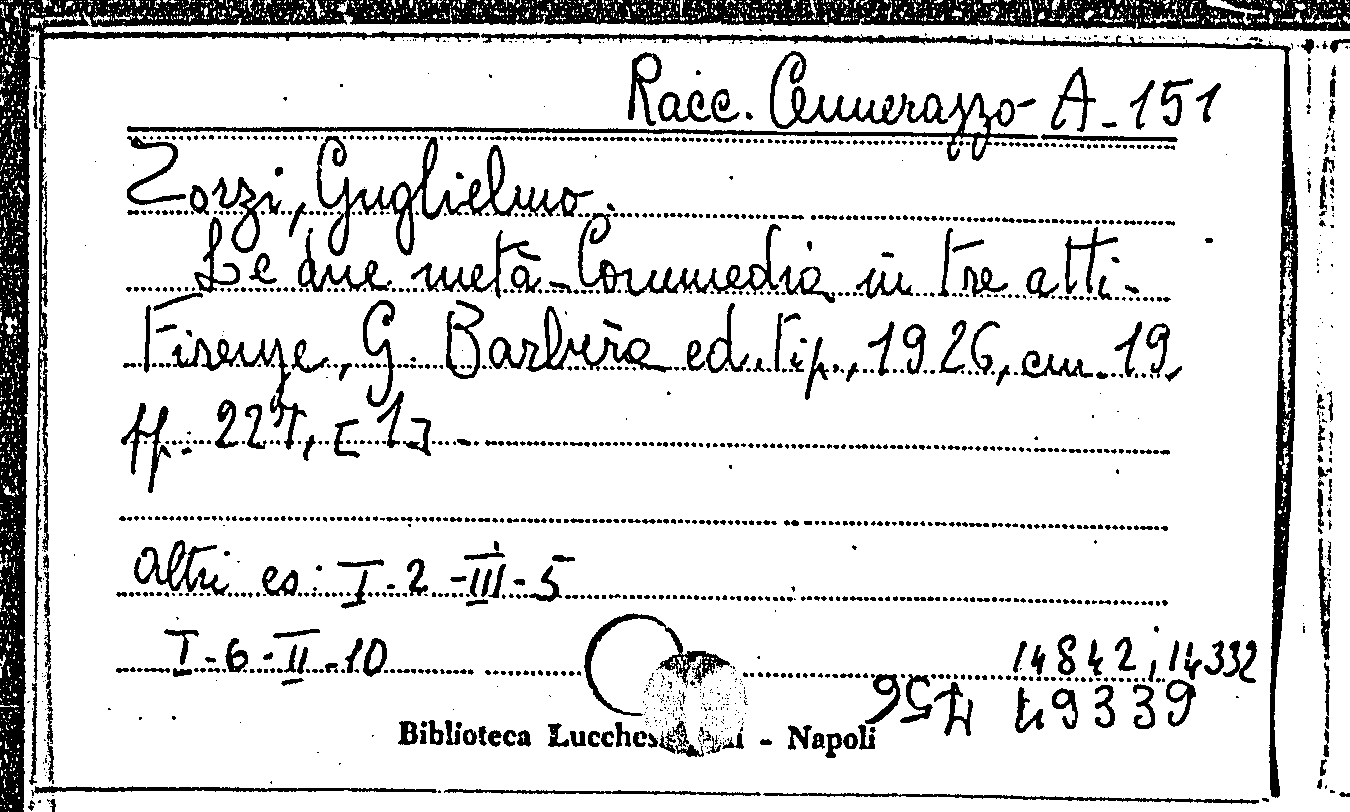 Racc. Cennerazzo A-151
Zorzi, Guglielmo.
Le due metà - Commedia in tre atti -
Firenze, G. Barbèra ed. tip., 1926, cm. 19,
pp. 227, [1] -
altri es: I-2-III-5
I-6-II-10
14842, 14332
Biblioteca - Napoli